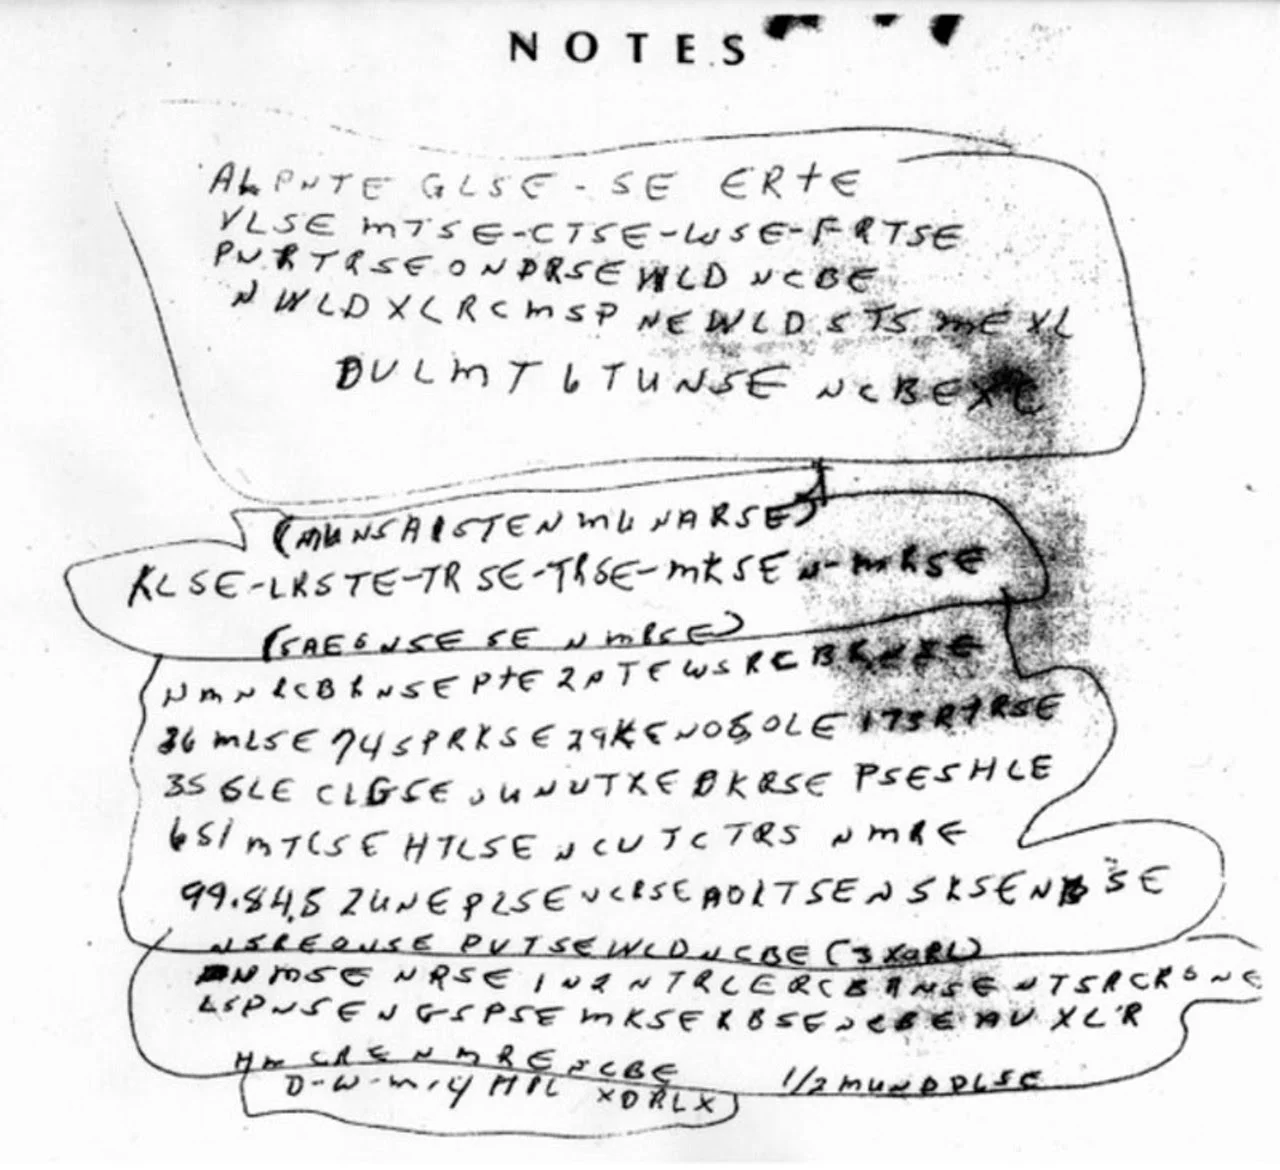 NOTES
ALPNTE GLSE - SE ERTE
VLSE MTSE-CTSE-WSE-FRTSE
PNRTRSE ONDRSE WLD NCBE
NWLDXLRCMSP NEWLDSTS MEXL
DULMT6TUNSE NCBEXC
(MUNSAISTEN MUNARSE)
KLSE-LRSTE-TRSE-TRSE-MKSEN-MRSE
(SAE6NSE SE N MRSE)
NMNRCBRNSE PTE2PTEWSRCBRNSE
36 MLSE 74SPRKSE 29KENOSOLE 173RTRSE
35 GLE CLGSE UNUTXE DKRSE PSESHLE
651 MTCSE HTLSE NCUTCTRS NMRE
99.84.5 ZUNEPLSE NCRSE AOLTSENSKSENB SE
NSREONSE PVTSEWLD NCBE (3XORL)
NMSE NRSE IN2NTRLERCBRNSE NTSRCRSNE
LSPNSENGSPSE MKSERBSENCBE AU XL'R
HM CRE N MRE NCBE 1/2 MUNDDLSE
D-W-M-4 HPL XDRLX